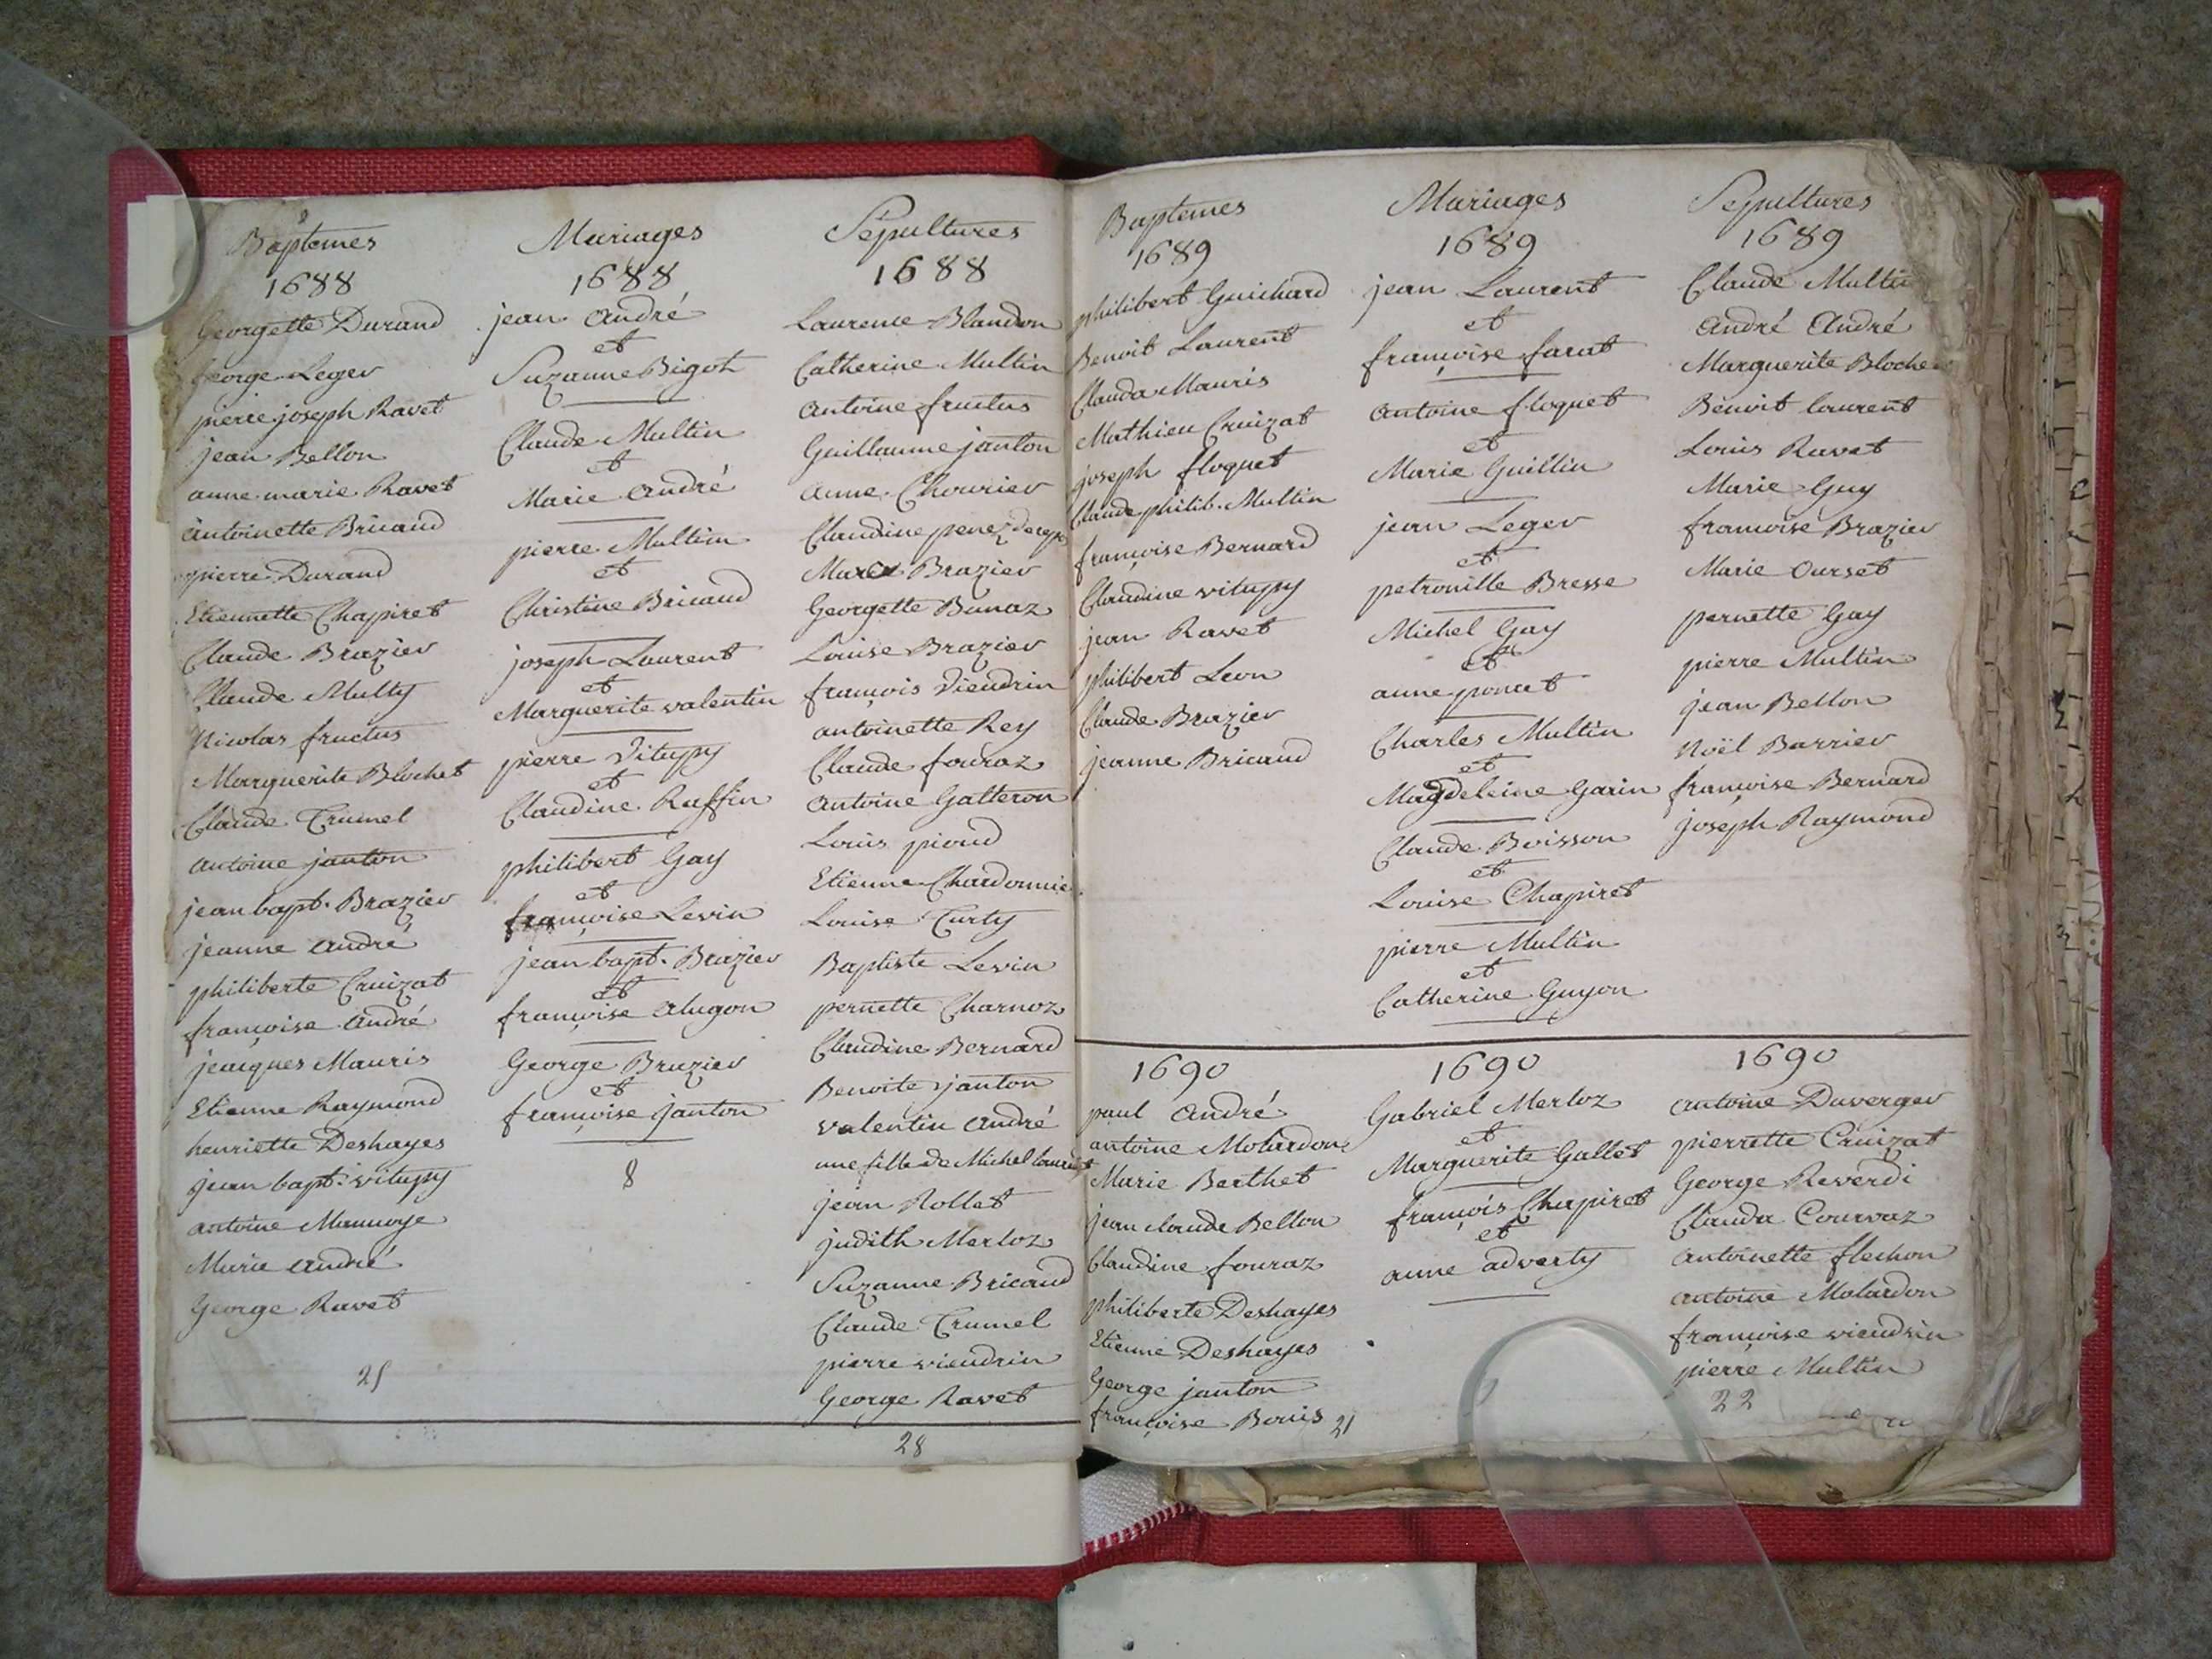 Baptemes
1688
Georgette Durand
George Leger
pierre joseph Ravet
jean Bellon
anne marie Ravet
antoinette Bricaud
pierre Durand
Etiennette Chapiret
Claude Brazier
Claude Multy
Nicolas fructus
Marguerite Blochet
Claude Trumel
antoine janton
jean bapt. Brazier
jeanne andré
philiberte Cruizat
françoise andré
jacques Mauris
Etienne Raymond
henriette Deshayes
jean bapt. vitupy
antoine
Marie andré
George Ravet
25
Mariages
1688
jean andré
et
Suzanne Bigot
Claude Multin
et
Marie andré
pierre Multin
et
Christine Bricaud
joseph Laurent
et
Marguerite valentin
pierre Vitupy
et
Claudine Ruffin
philibert Gay
et
françoise Levin
jean bapt. Brazier
et
françoise alugon
George Brazier
et
françoise janton
8
Sépultures
1688
Laurence Blandon
Catherine Multin
antoine fructus
Guillaume janton
anne Chourier
Claudine penez
Brazier
Georgette Bunaz
Louise Brazier
françois Vieudrin
antoinette Rey
Claude fouraz
antoine Galteron
Louis pioud
Etienne Chardonnie
Louise Curty
Baptiste Levin
pernette Charnoz
Claudine Bernard
Benoite janton
valentin andré
une fille de Michel laurent
jean Rollet
judith Merloz
Suzanne Bricaud
Claude Trumel
pierre vieudrin
George Ravet
28
Baptemes
1689
philibert Guichard
Benoit Laurent
Clauda Mauris
Mathieu Cruizat
joseph floquet
Claude philib. Multin
françoise Bernard
Claudine vitupy
jean Ravet
philibert Leon
Claude Brazier
jeanne Bricaud
Mariages
1689
jean Laurent
et
françoise farat
antoine floquet
et
Marie Guillin
jean Leger
et
petronille Bresse
Michel Gay
et
anne poncet
Charles Multin
et
Magdeleine Garin
Claude Buisson
et
Louise Chapiret
pierre Multin
et
Catherine Guyon
Sépultures
1689
Claude Multin
andré andré
Marguerite Bloche
Benoit laurent
Louis Ravet
Marie Guy
françoise Brazier
Marie Ourset
pernette Gay
pierre Multin
jean Bellon
Noël Barrier
françoise Bernard
joseph Raymond
1690
paul andré
antoine Molardon
Marie Berthet
jean claude Bellon
Claudine fouraz
philiberte Deshayes
Etienne Deshayes
George janton
françoise Bouis 21
1690
Gabriel Merloz
et
Marguerite Gallet
françois Chapiret
et
anne adverty
1690
antoine Duverger
pierrette Cruizat
George Reverdi
Clauda Courvaz
antoinette flechon
antoine Molardon
françoise vieudrin
pierre Multin
22